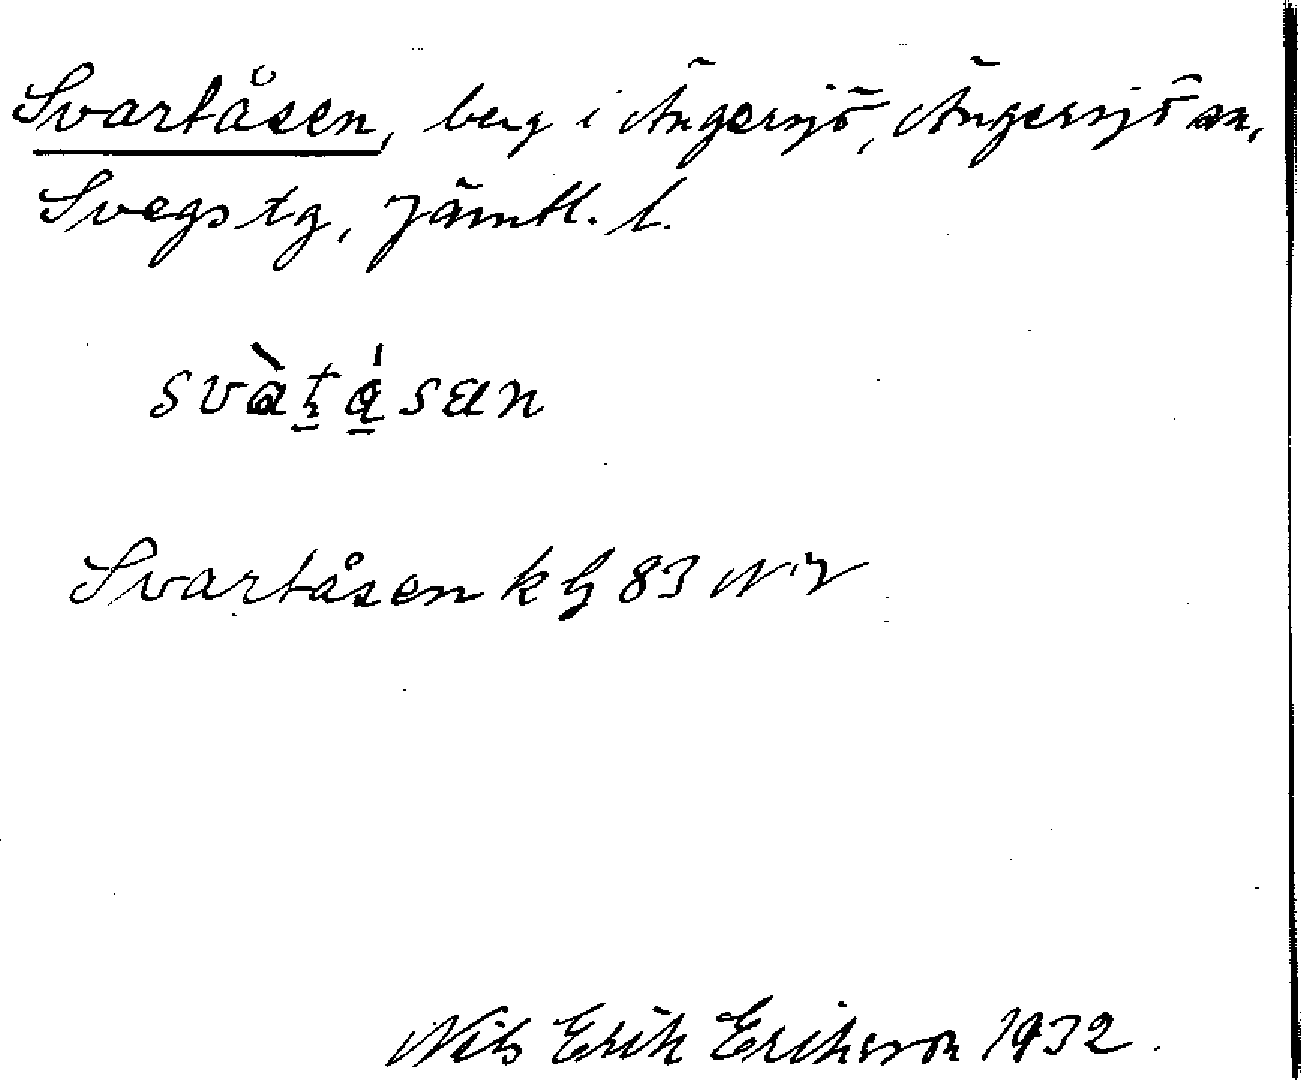 Svartåsen, berg i Ängersjö, Ängersjö sn,
Svegs tg, Jämtl. l.
Svartåsen k bl 83 NV
Nils Erik Eriksson 1932.